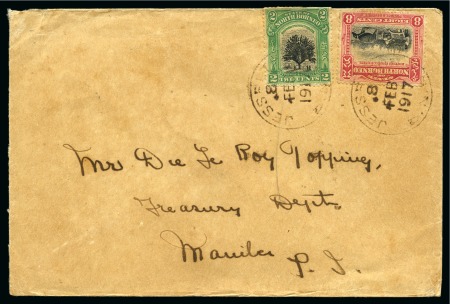 2 NORTH BORNEO 2
2 TWO CENTS 2
8 EIGHT CENTS 8
NORTH BORNEO
JESSE
8
FEB
1917
JESSE
8
FEB
1917
Mr Dee Le Roy Topping,
Treasury Dept.
Manila
P. I.